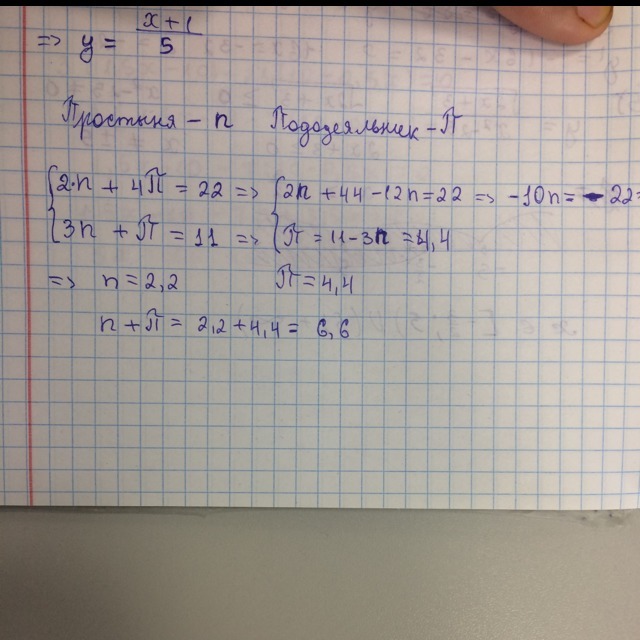 => y = x+1 / 5
Простыня - п Пододеяльник - П
{2·п + 4П = 22 => {2п + 44 - 12п = 22 => -10п = -22 =
{3п + П = 11 => {П = 11 - 3п = 4,4
=> п = 2,2 П = 4,4
п + П = 2,2 + 4,4 = 6,6